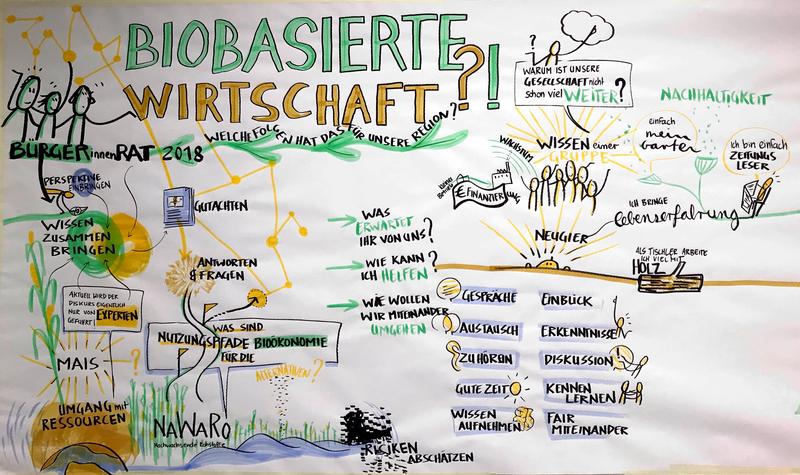 BIOBASIERTE
WIRTSCHAFT?!
WELCHE FOLGEN HAT DAS FÜR UNSERE REGION?
BÜRGERinnenRAT 2018
PERSPEKTIVE
EINBRINGEN
WISSEN
ZUSAMMEN
BRINGEN
AKTUELL WIRD DER
DISKURS EIGENTLICH
NUR VON EXPERTEN
GEFÜHRT!
MAIS
?
UMGANG mit
RESSOURCEN
GUTACHTEN
ANTWORTEN
& FRAGEN
WAS SIND
NUTZUNGSPFADE BIOÖKONOMIE
FÜR DIE
ALTERNATIVEN?
NAWARO
Nachwachsende Rohstoffe
RISIKEN
ABSCHÄTZEN
WAS
ERWARTET
IHR VON UNS?
WIE KANN
ICH HELFEN?
WIE WOLLEN
WIR MITEINANDER
UMGEHEN
?
WARUM IST UNSERE
GESELLSCHAFT nicht
schon viel WEITER?
NACHHALTIGKEIT
WISSEN einer
GRUPPE
einfach
mein
Garten
Ich bin einfach
ZEITUNGS
LESER
WACHSTUM
€ FINANZIERUNG
ICH BRINGE
Lebenserfahrung
NEUGIER
ALS TISCHLER ARBEITE
ICH VIEL MIT
HOLZ
GESPRÄCHE
AUSTAUSCH
ZUHÖREN
GUTE ZEIT
WISSEN
AUFNEHMEN
EINBLICK
ERKENNTNISSE
DISKUSSION
KENNEN
LERNEN
FAIR
MITEINANDER